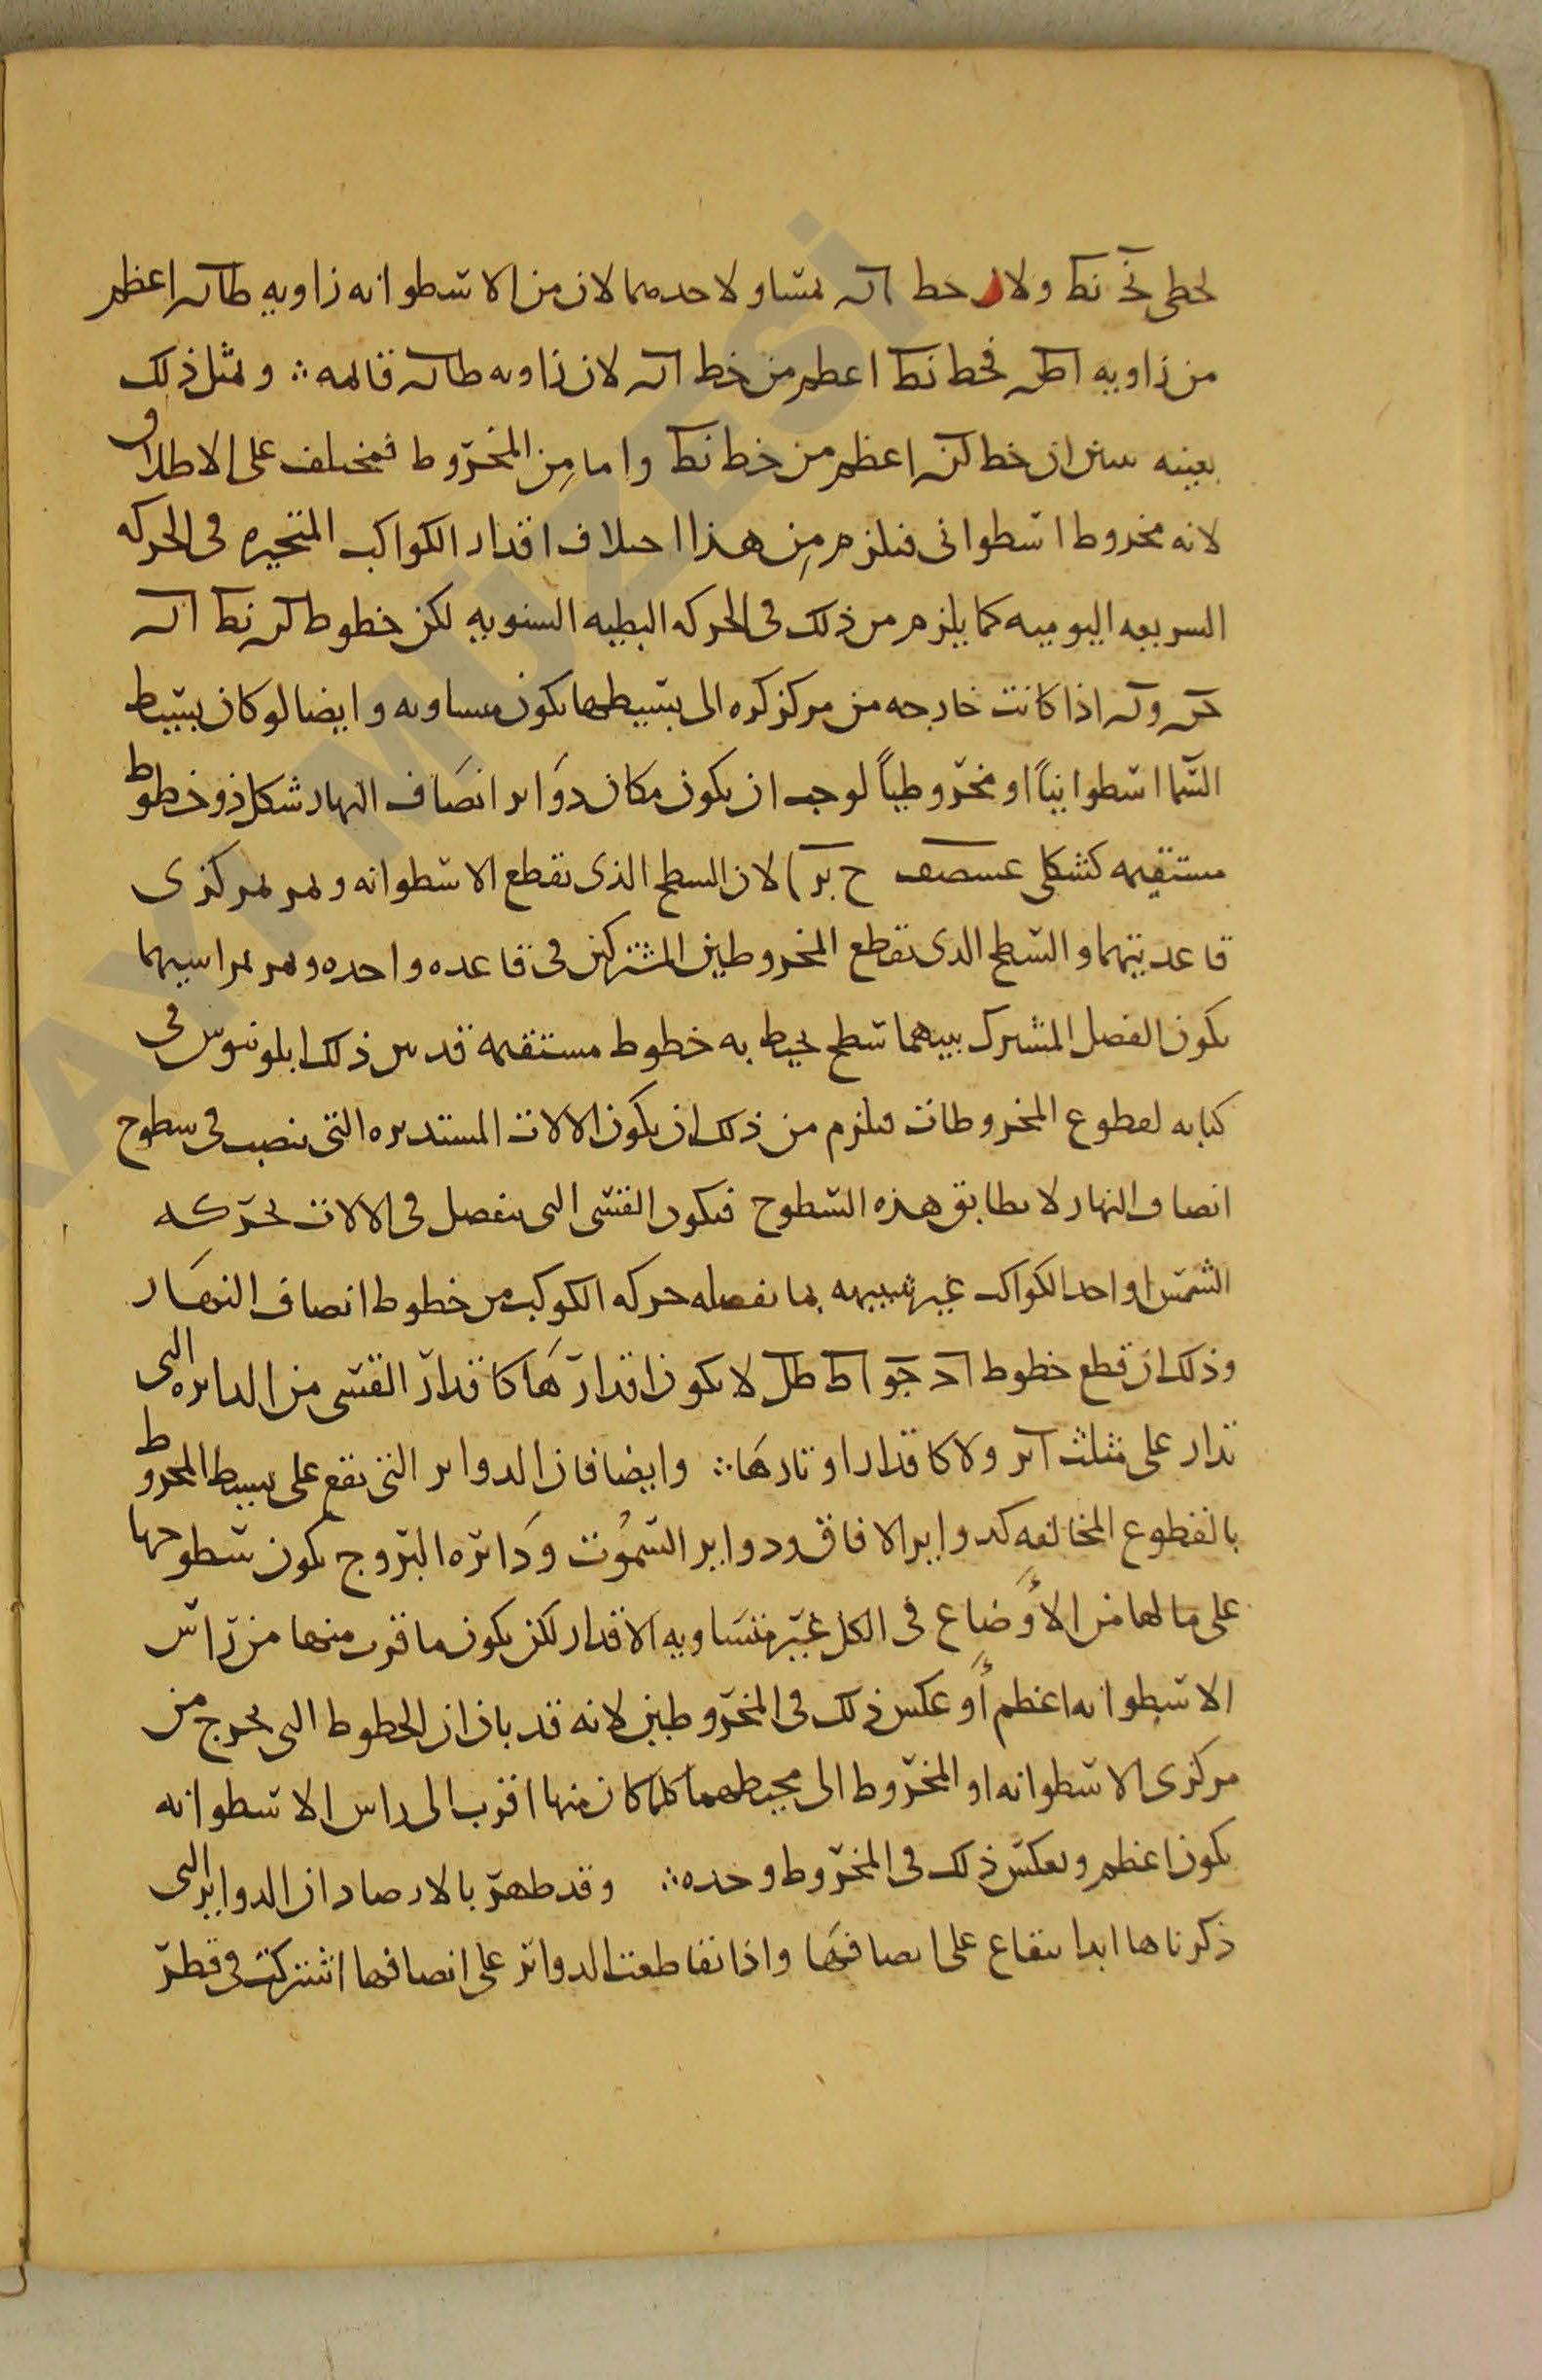 لخطى نج نط ولا خط اله بمساو لاحدهما لان من الاسطوانه زاويه طاله اعظم
من زاويه اطه فخط نط اعظم من خط اله لان زاويه طاله قائمه ∴ وبمثل ذلك
بعينه يتبين ان خط اعظم من خط نط واما مِن المخرّوط فمختلف على الاطلاق
لانه مخروط اسطوانى فيلزم مِن هذا اختلاف اقدار الكواكب المتحيره فى الحركه
السريعه اليوميه كما يلزم من ذلك فى الحركه البطيه السنويه لكن خطوط نط اله
اذا كانت خارجه من مركز كره الى بسيطها تكون متساويه وايضا لو كان بسيط
السّما اسطوانيّاً او مخرّوطيّاً لوجب ان يكون مكان دوَاير انصَاف النهار شكل ذو خطوط
مستقيمه كشكلى عسصف ح لان السطح الذى يقطع الاسطوانه ويمر بمركزى
قاعدتيهما والسّطح الدى يقطع المخروطين المشتركين فى قاعده واحده ويمر براسيهما
يكون الفصل المشترك بينهما سَطح يحيط به خطوط مستقيمه قد بين ذلك ابلونيوس فى
كتابه لقطوع المخروطات فيلزم من ذلك ان يكون الالات المستديره التى تنصب فى سطوح
انصاف النهار لا يطابق هذه السّطوح فيكون القسّى التى ينفصل فى الالات بحرّكه
الشمسّ او احد الكواكب غير شبيهه بما تفصله حركه الكوكب من خطوط انصاف النهَار
وذلك ان قطع خطوط اط طل لا يكون اقدارهَا كاقدار القسّى من الدائره التى
تدار على مثلث ولا كاقدار اوتارهَا ∴ وايضا فان الدواير التى تقع على بسيط المخروط
بالقطوع المخالفه كدواير الافاق ودواير السّمُوت ودَائره البرّوج يكون سّطوحها
على مالها من الأَوضَاع فى الكل غيّر متسَاويه الاقدار لكن يكون ما قرب منها من رَاسّ
الاسّطوانه اعظم أَو عكس ذلك فى المخرّوطين لانه قد بان ان الخطوط التى تخرج من
مركزى الاسّطوانه او المخرّوط الى محيطهما كلما كان منها اقرب الى راس الاسّطوانه
يكون اعظم وبعكسّ ذلك فى المخرّوط وحده ∴ وقد ظهرّ بالارصاد ان الدواير التى
ذكرناها ابدا تتقاع على انصافهَا واذا تقاطعت الدوائر على انصافها اشتركت فى قطرّ